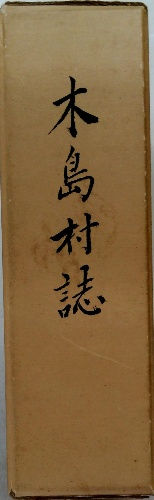 木島村誌